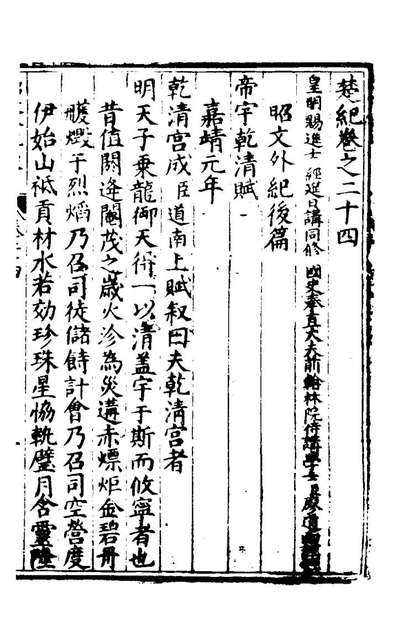 楚紀卷之二十四
皇明賜進士 經筵日講同修 國史奉直大夫前翰林院侍講學士臣廖道南
昭文外紀後篇
帝宇乾清賦
嘉靖元年
乾清宮成臣道南上賦叙曰夫乾清宮者
明天子乘龍御天得一以清蓋宇于斯而攸寧者也
昔值閼逢閹茂之歲火沴為災遘赤熛炬金碧丹
雘燬于烈熖乃召司徒儲偫計會乃召司空營度
伊始山祗貢材水若効珍珠星恊軌璧月含靈隆